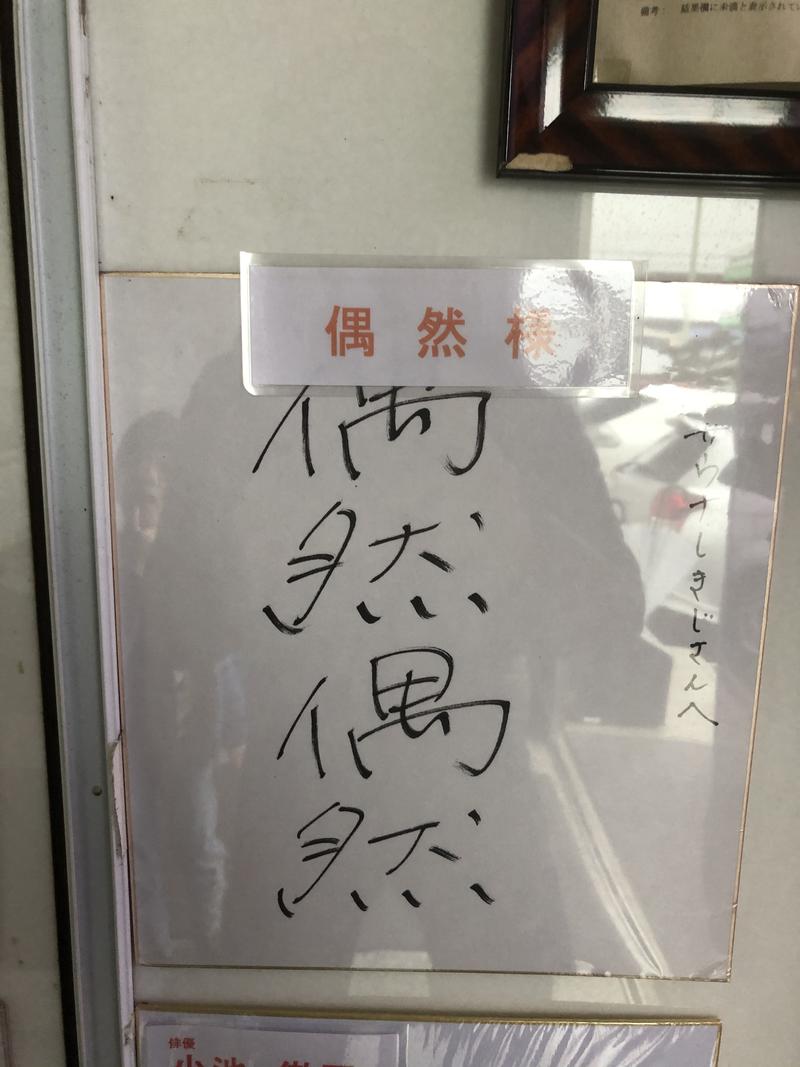 備考： 結果欄に未満と表示されてい
偶然様
サウナしきじさんへ
偶然偶然
俳優